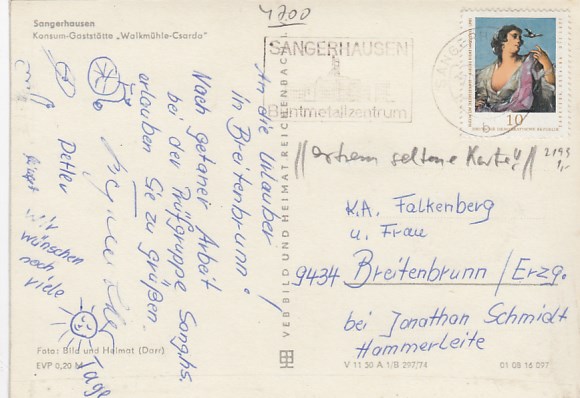 Sangerhausen
Konsum-Gaststätte „Walkmühle-Csarda"
4700
SANGERHAUSEN
Buntmetallzentrum
10
DEUTSCHE DEMOKRATISCHE REPUBLIK
//extrem seltene Karte!!//
2193
1,-
An die Urlauber
in Breitenbrunn!
Nach getaner Arbeit
bei der Prüfgruppe Sanghs.
erlauben Sie zu grüßen.
Detlev
wir
wünschen
noch
viele
Tage
K.A. Falkenberg
u. Frau
9434 Breitenbrunn/Erzg.
bei Jonathan Schmidt
Hammerleite
VEB BILD UND HEIMAT REICHENBACH
Foto: Bild und Heimat (Darr)
EVP 0,20 M
V 11 50 A 1/B 297/74
01 08 16 097